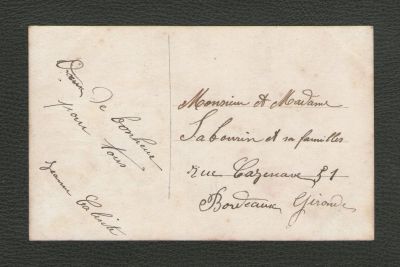 de bonheur
pour tous
Jeanne
Monsieur et Madame
Sabourin et sa familles
rue Cazenave 51
Bordeaux Gironde